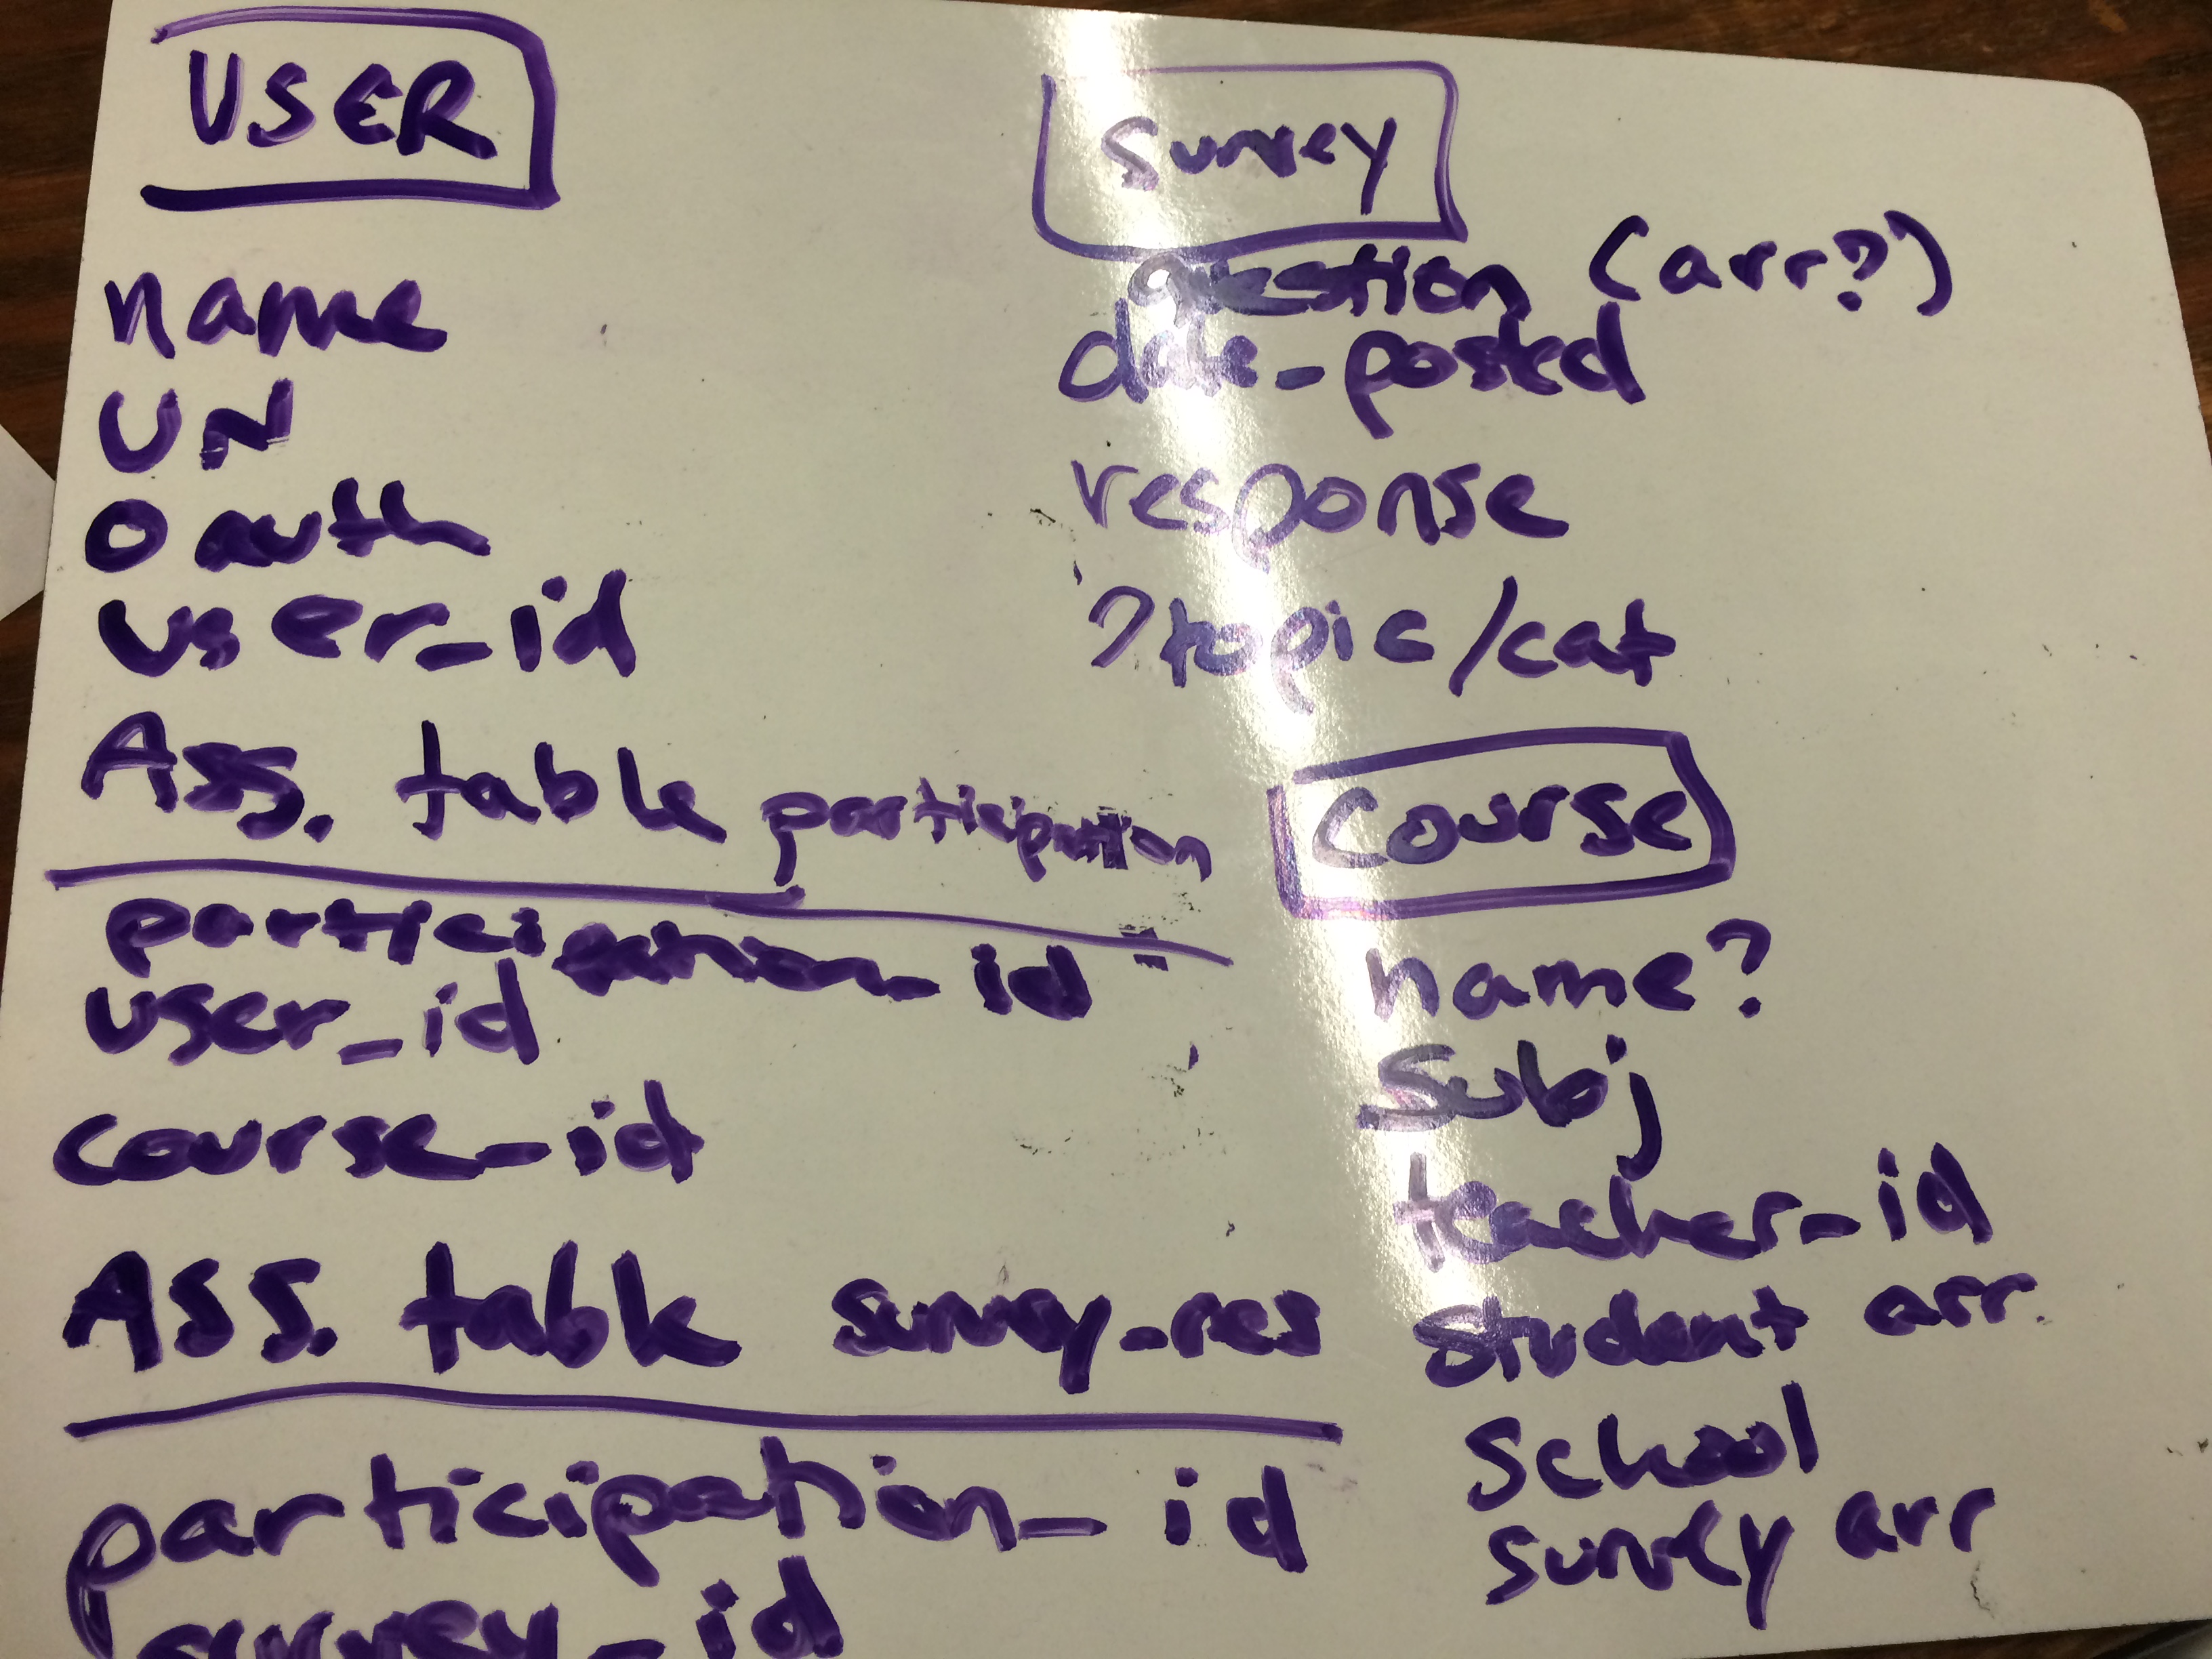 USER
name
UN
Oauth
user_id
ASS. table participation
participation_id
user_id
course_id
ASS. table survey_res
participation_id
survey_id
Survey
question (arr?)
date-posted
response
? topic/cat
Course
name?
Subj
teacher_id
student arr.
School
survey arr